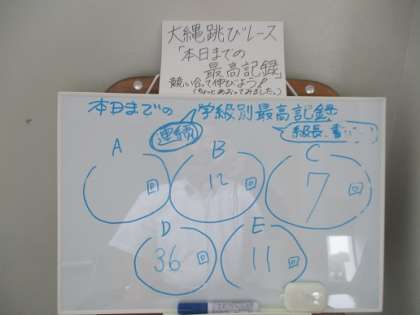 大縄跳びレース
「本日までの
最高記録」
競い合って伸びよう!
(ちょっとあおってみました。)
本日までの学級別最高記録
連続
級長、書
A B C
回 12回 7回
D E
36回 11回